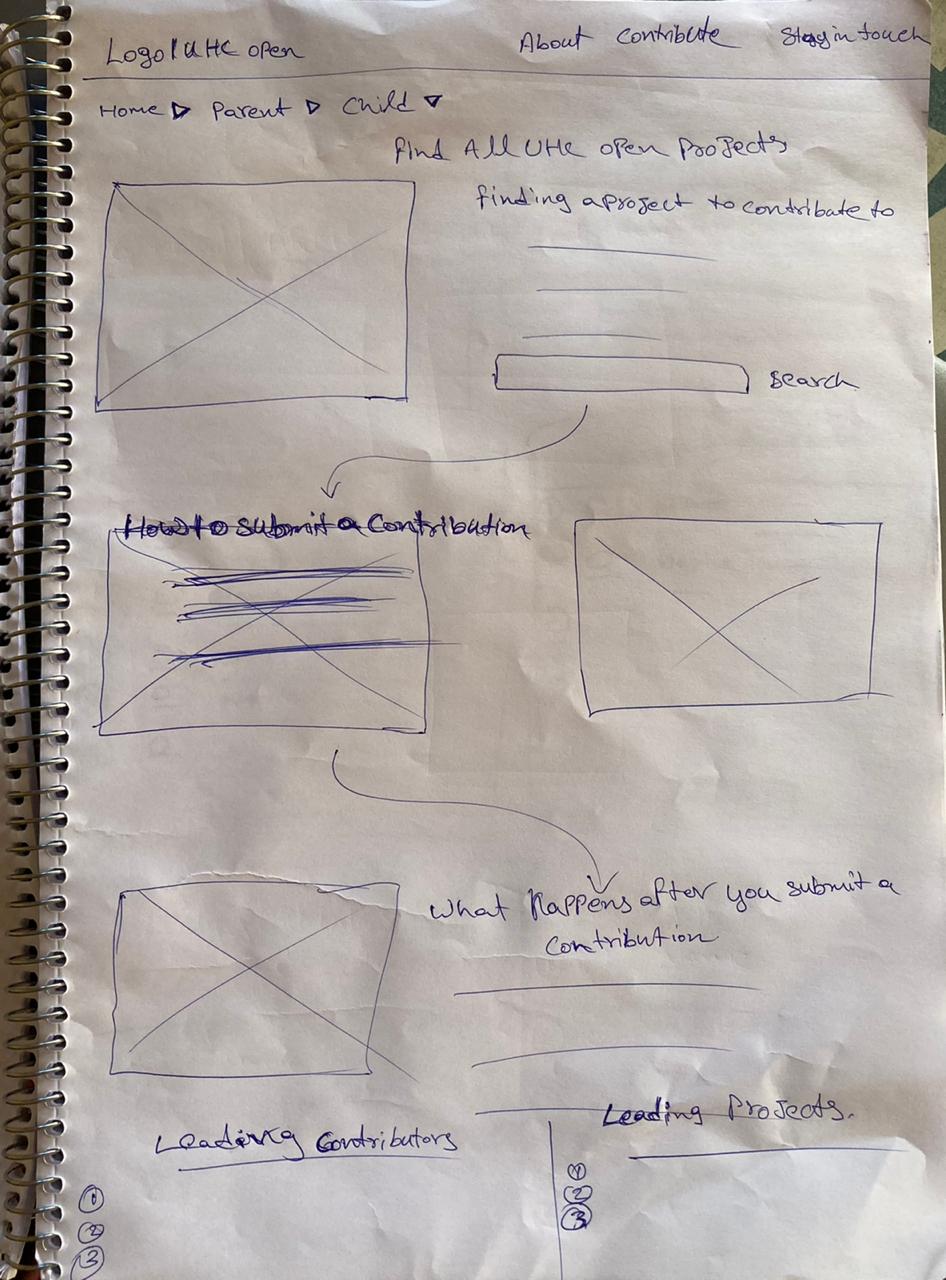 Logo | UHC open
About Contribute Stay in touch
Home ▷ Parent ▷ Child ▽
Find All UHC open Projects
finding a project to contribute to
search
How to submit a Contribution
What Happens after you submit a
Contribution
Leading Projects.
Leading Contributors
①
②
③
①
②
③